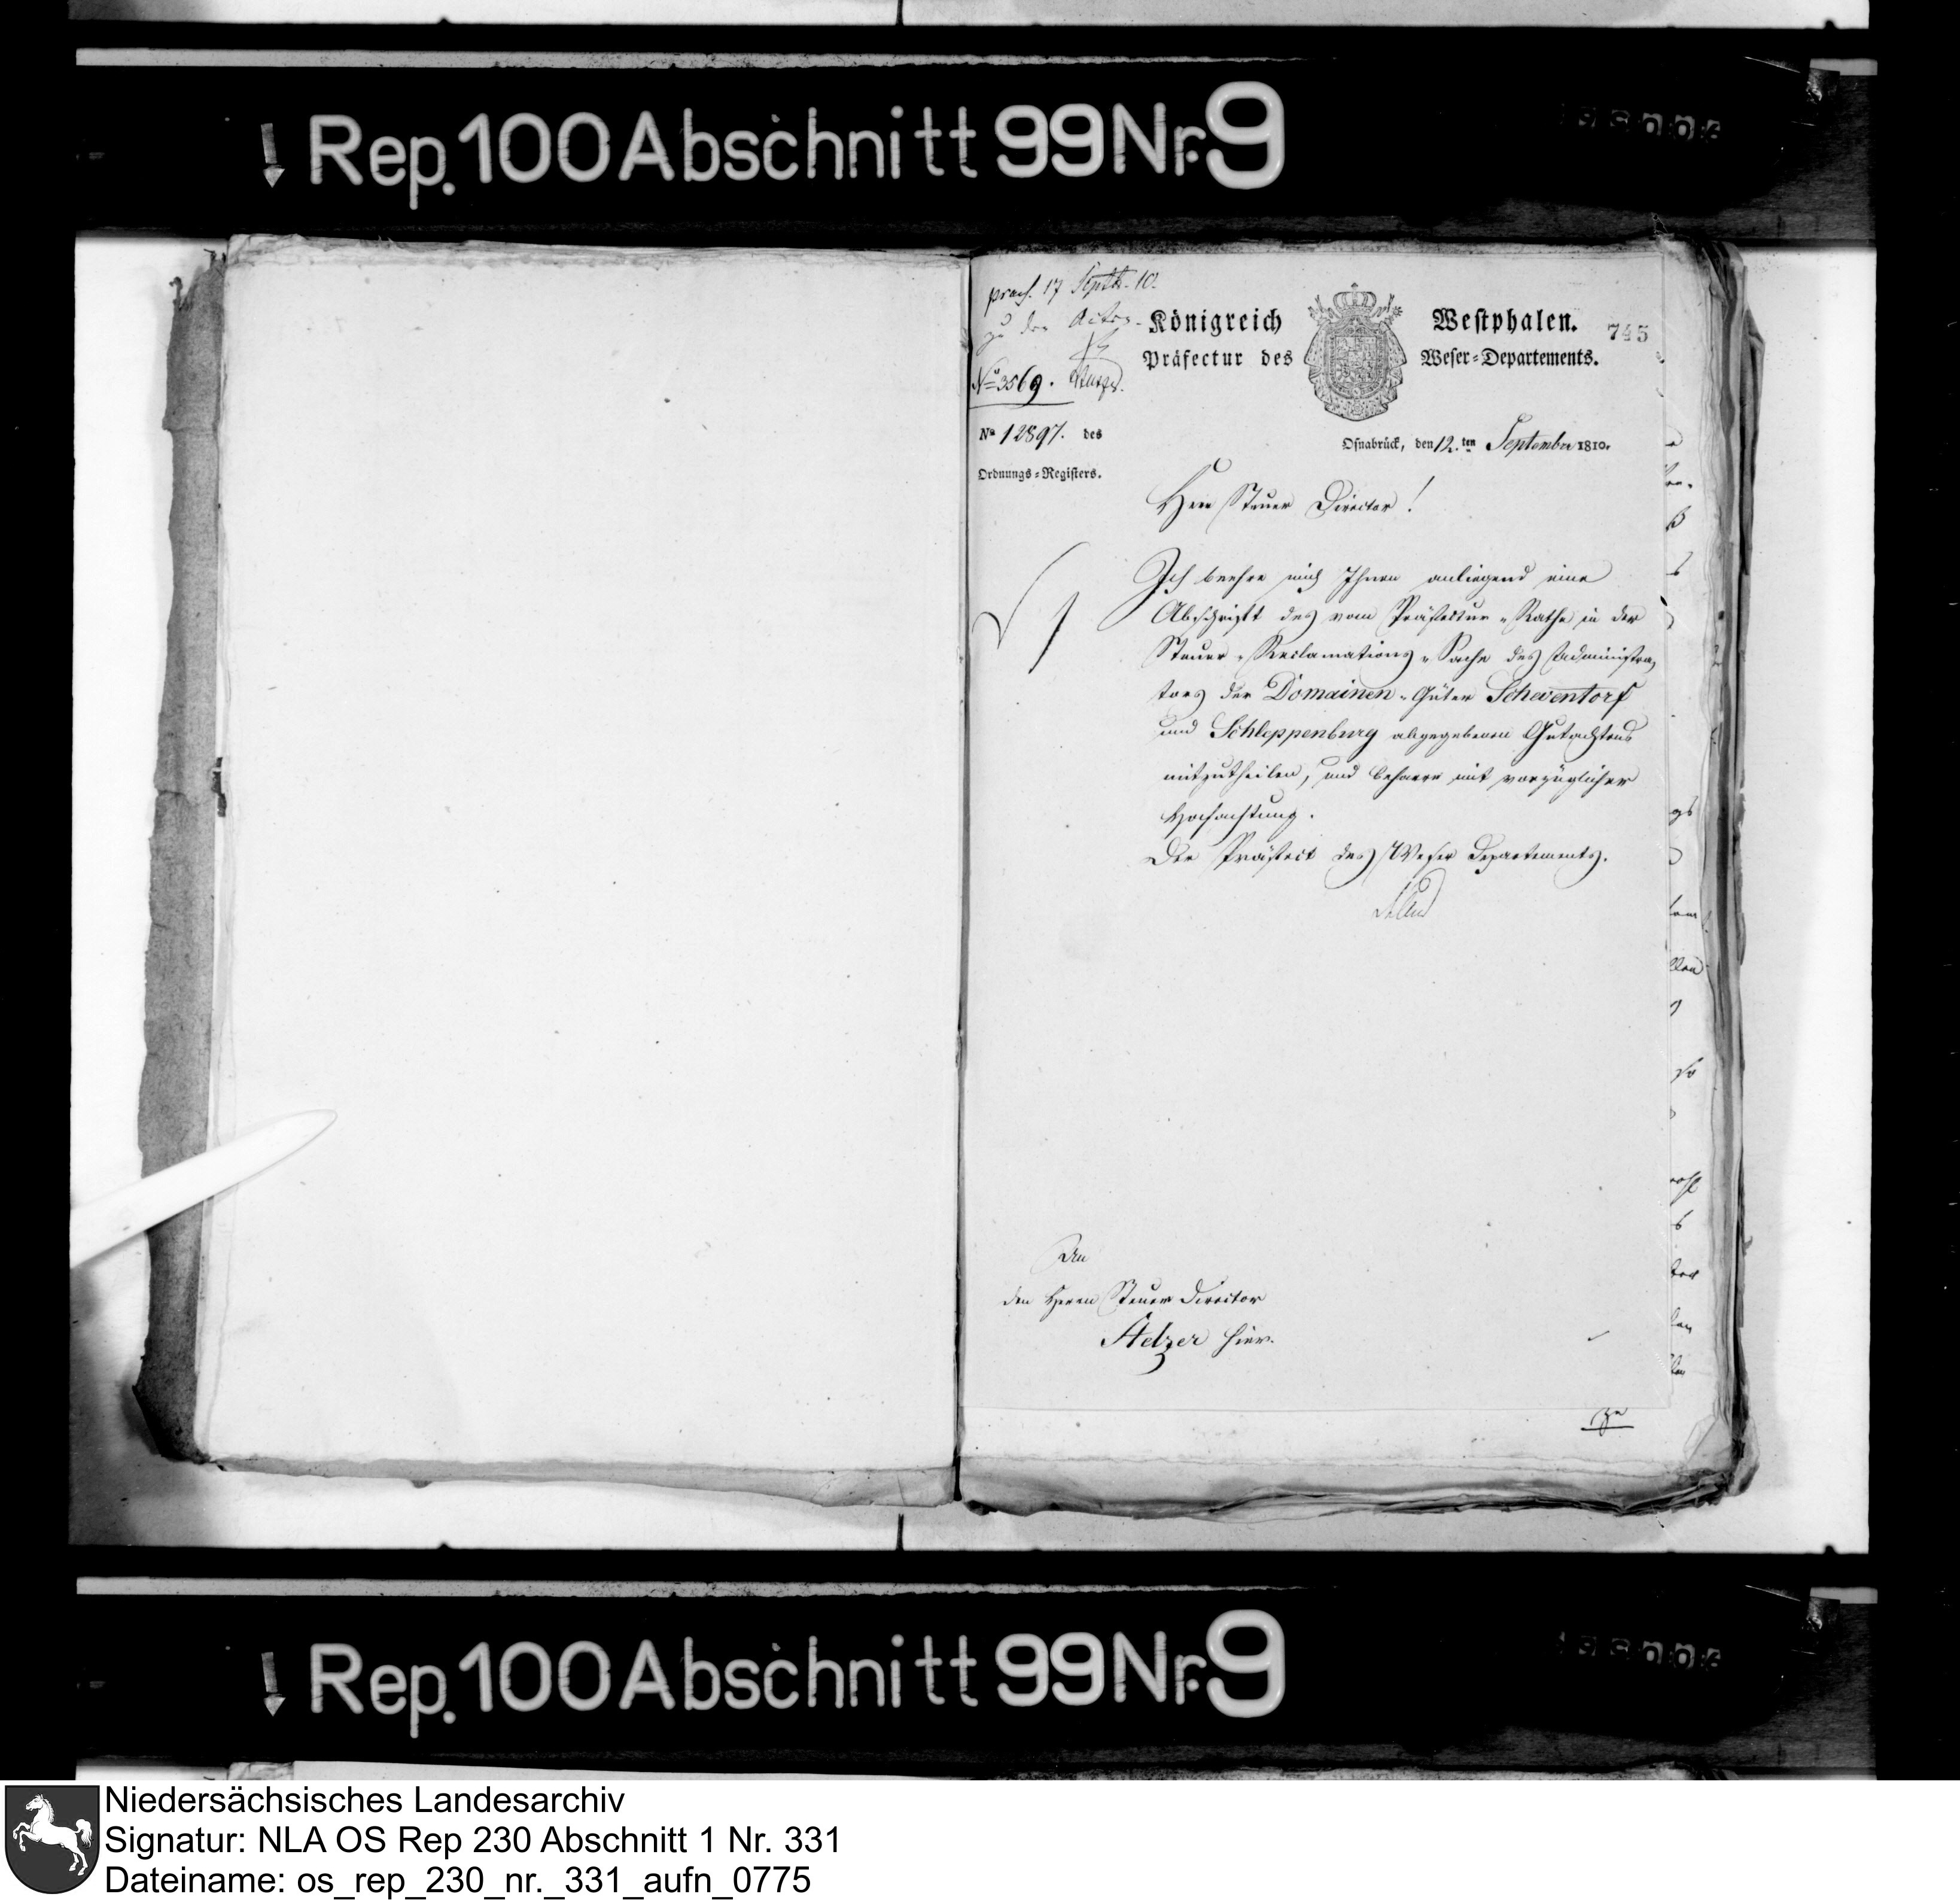 ↓ Rep. 100 Abschnitt 99 Nr. 9
præs. 17 Septbr. 10.
zu den Acten.
No 3569.
Königreich Westphalen.
745
Präfectur des Weser-Departements.
No 12897. des
Ordnungs-Registers.
Osnabrück, den 12.ten September 1810.
Herr Steuer Director!
Ich beehre mich Ihnen anliegend eine
Abschrift des vom Präfectur-Rathe in der
Steuer-Reclamations-Sache des Administra-
tors der Domainen-Güter Scheventorf
und Schleppenburg abgegebenen Gutachtens
mitzutheilen, und beharre mit vorzüglicher
Hochachtung.
Der Präfect des Weser Departements.
An
den Herrn Steuer Director
Stelzer hier.
↓ Rep. 100 Abschnitt 99 Nr. 9
Niedersächsisches Landesarchiv
Signatur: NLA OS Rep 230 Abschnitt 1 Nr. 331
Dateiname: os_rep_230_nr._331_aufn_0775